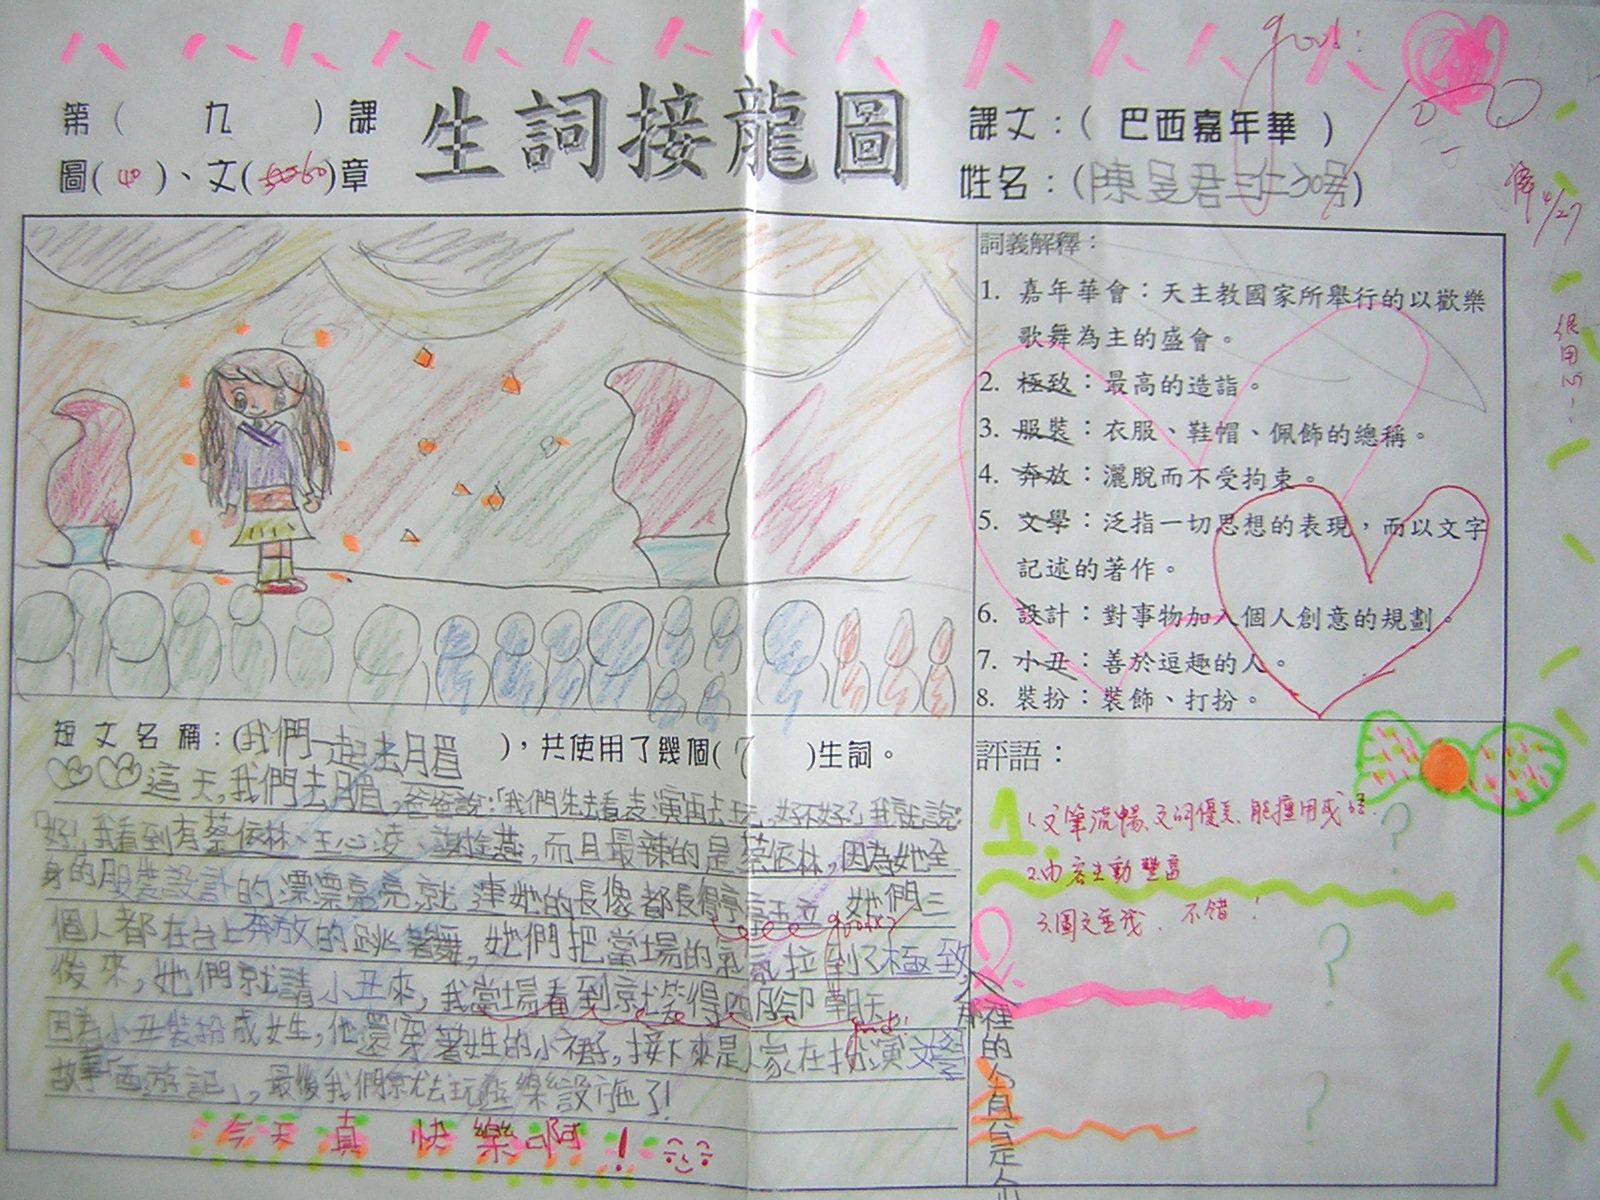 第（ 九 ）課
生詞接龍圖
課文：( 巴西嘉年華 )
圖( 40 )、文( 60 )章
姓名：(陳旻君
good!
4/27
很用心
詞義解釋：
1. 嘉年華會：天主教國家所舉行的以歡樂
歌舞為主的盛會。
2. 極致：最高的造詣。
3. 服裝：衣服、鞋帽、佩飾的總稱。
4. 奔放：灑脫而不受拘束。
5. 文學：泛指一切思想的表現，而以文字
記述的著作。
6. 設計：對事物加入個人創意的規劃。
7. 小丑：善於逗趣的人。
8. 裝扮：裝飾、打扮。
短文名稱：(我們一起去月眉 )，共使用了幾個( 7 )生詞。
這天，我們去月眉，爸爸說：「我們先去看表演再去玩，好不好？」我就說：
「好！」我看到有蔡依林、王心凌、謝金燕，而且最辣的是蔡依林，因為她全
身的服裝設計的漂漂亮亮，就連她的長像都長得亭亭玉立，她們三
個人都在台上奔放的跳著舞，她們把當場的氣氛拉到了極致，
後來，她們就請小丑來，我當場看到就笑得四腳朝天，
因為小丑裝扮成女生，他還穿著女生的小裙子，接下來是人家在扮演文學
故事「西遊記」，最後我們就去玩遊樂設施了！
今天真快樂啊！
評語：
1. 1.文筆流暢、文詞優美、能擅用成語.
2.內容生動豐富
2. 3.圖文並茂、不錯！
?
?
?